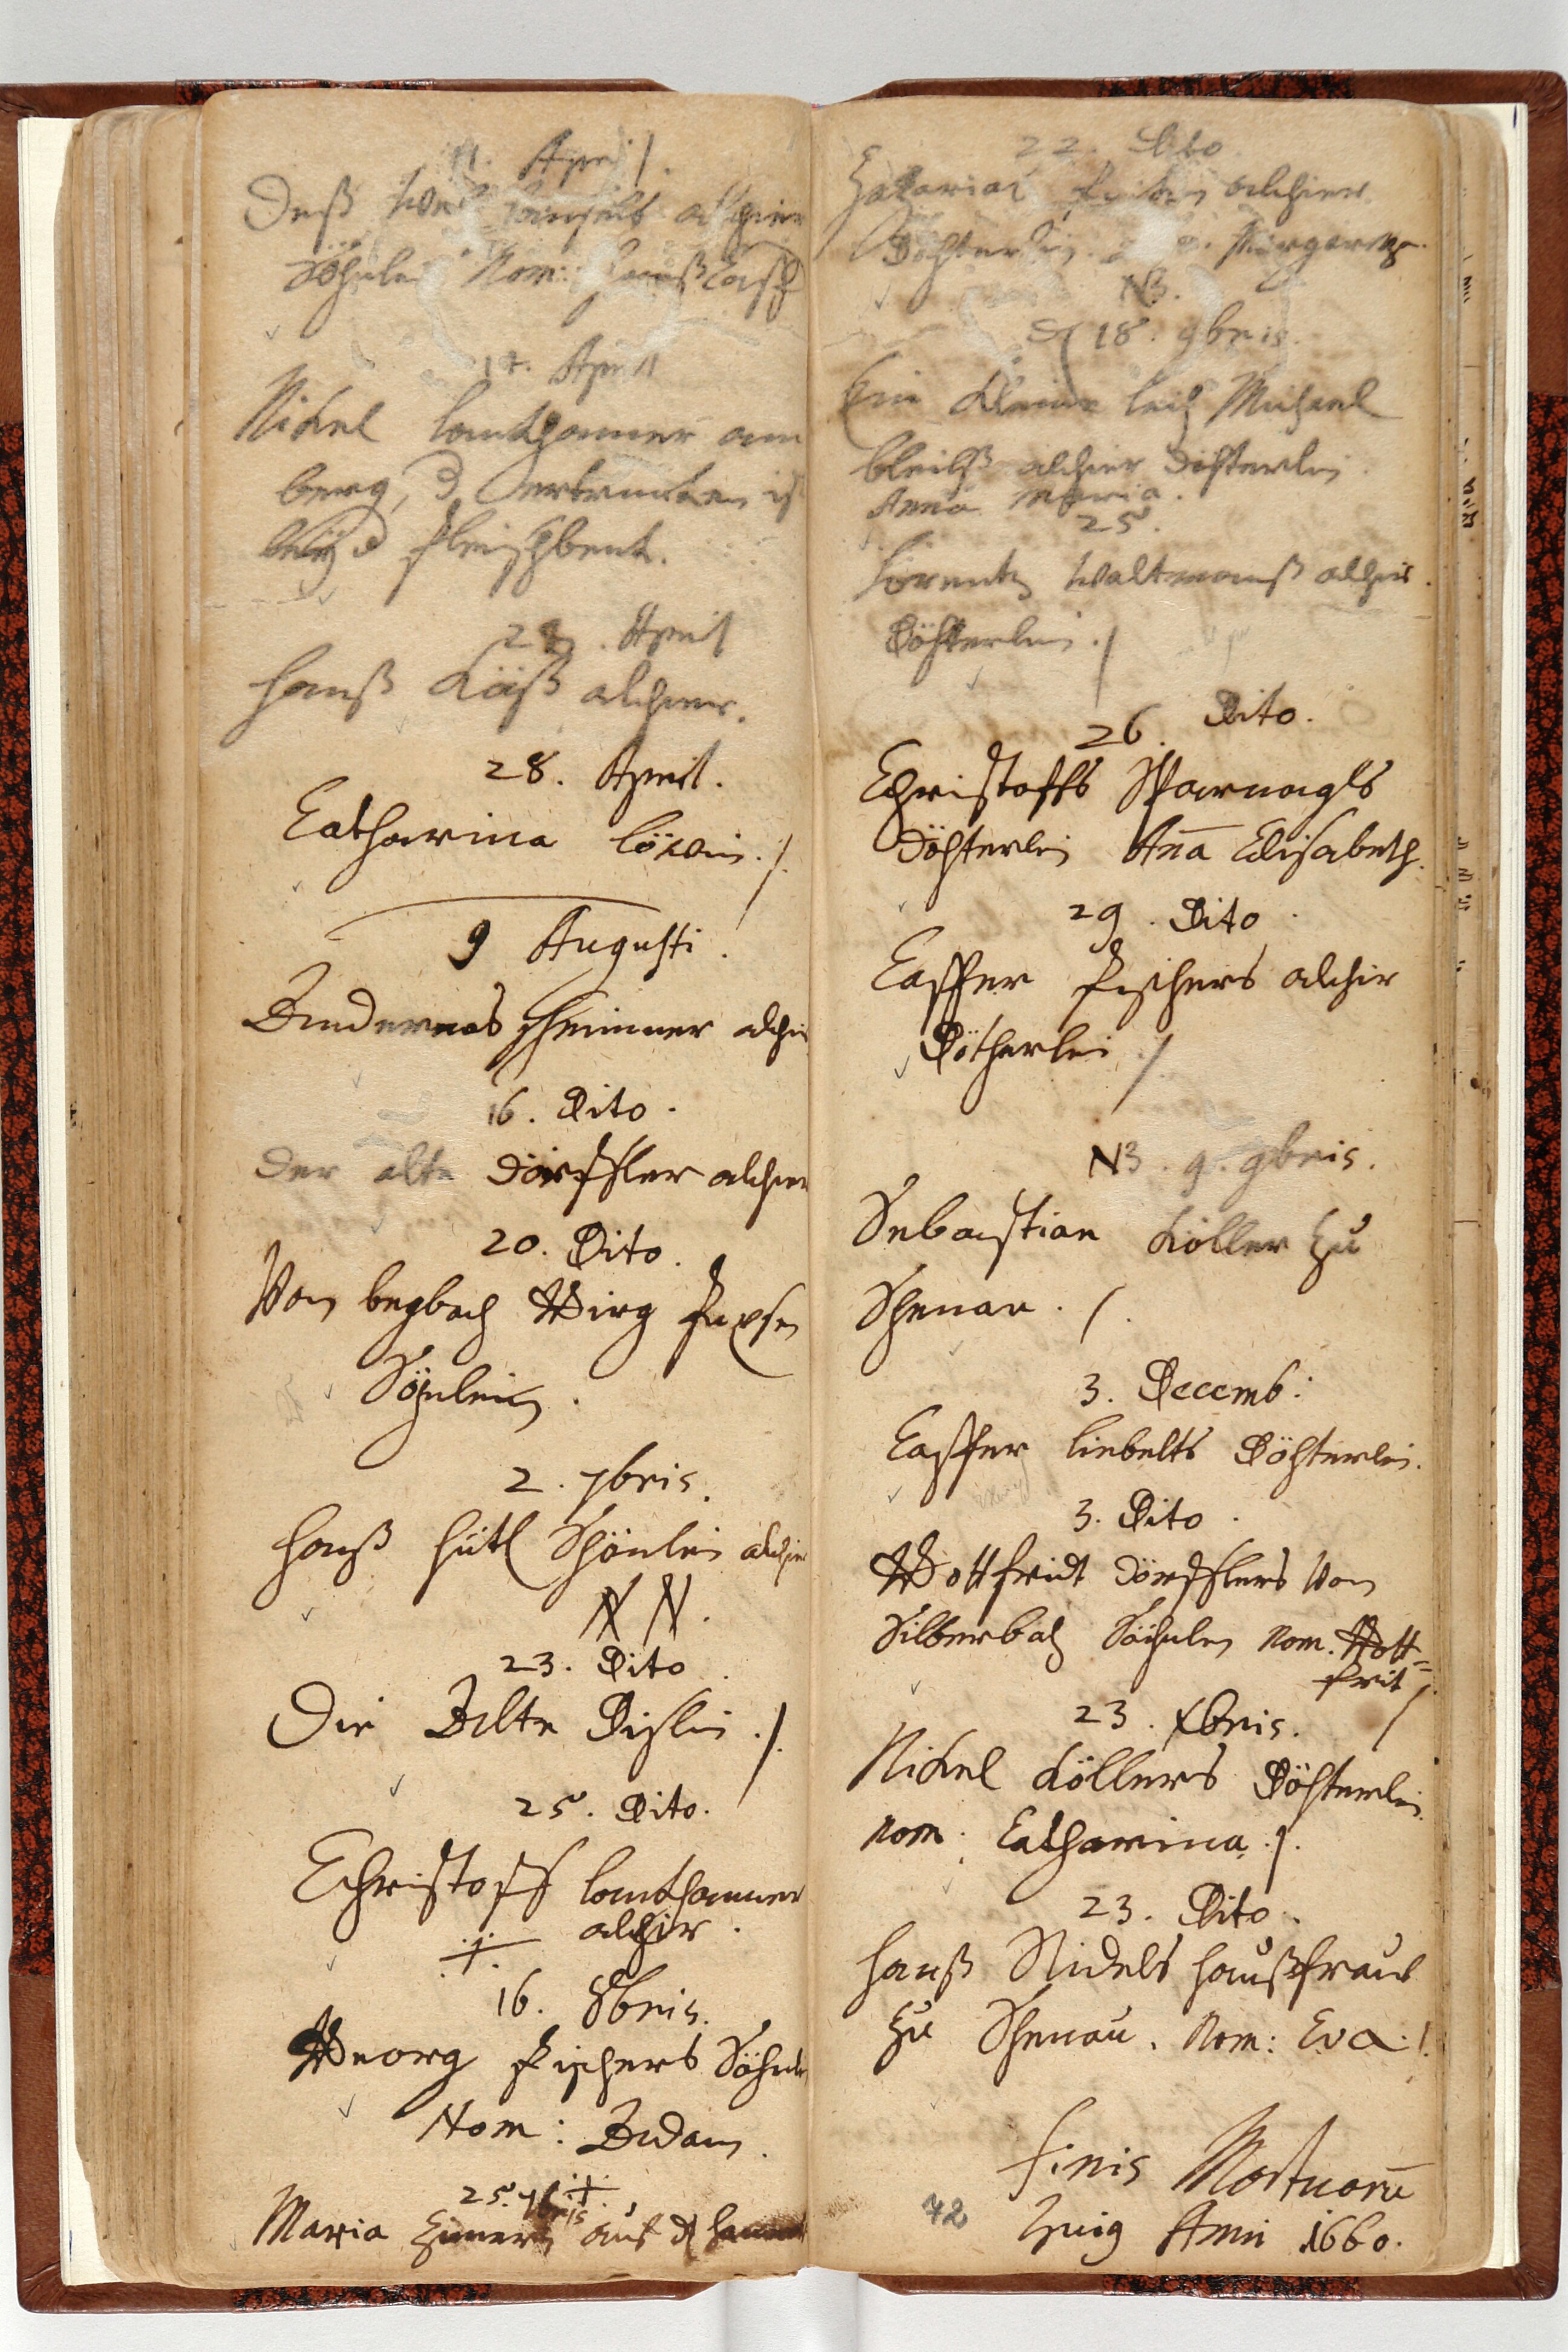 11. April.
Deß alhier
Söhnlein Nom: Hanß Casp
17. April
Nickel Lanthammer am
berg, d. ertruncken ist
bey d Fleischbenk.
28. April
Hanß Köiß alhier.
28. April.
Catharina Löwin ./.
9 Augusti.
Andereas Schminner alhier
16. Dito.
Der alte Dörffler alhier
20. Dito.
Von begbach Girg
Söhnlein.
2. 7bris.
Hanß Hütl Schönlein alhier
NN.
23. Dito
Die Alte Dislin ./.
25. Dito.
Christoff Lanthammer
alhir.
16. 8bris.
Georg Fischers Söhnle
Nom: Adam.
25. 7bris
Maria auß d
22. Dito
Zakarias alhier
Döchterlein Margareta.
NB.
d 18. 9bris.
Ein Kleine leich Michael
bleilß alhier Döchterlein.
Anna Maria.
25.
Lorentz Waltmanß alhir.
Döchterlein ./
26. Dito.
Christoffs Sparnagls
Döchterlein Ana Elisabeth.
29. Dito
Casper Fischers alhir
Dötherlei ./
NB. 9. 9bris.
Sebastian Köller zu
Schenau ./.
3. Decemb:
Casper Liebelts Döchterlei.
3. Dito.
Gottfridt Dörfflers Von
Silberbach Söihnlen Nom. Gott=
frit ./
23. Xbris.
Nickel Köllers Döchterlei
Nom: Catharina ./.
23. Dito.
Hanß Nidels Haußfraus
zu Schenau. Nom: Eva ./.
Finis Mortuorū
72
huig Anni 1660.